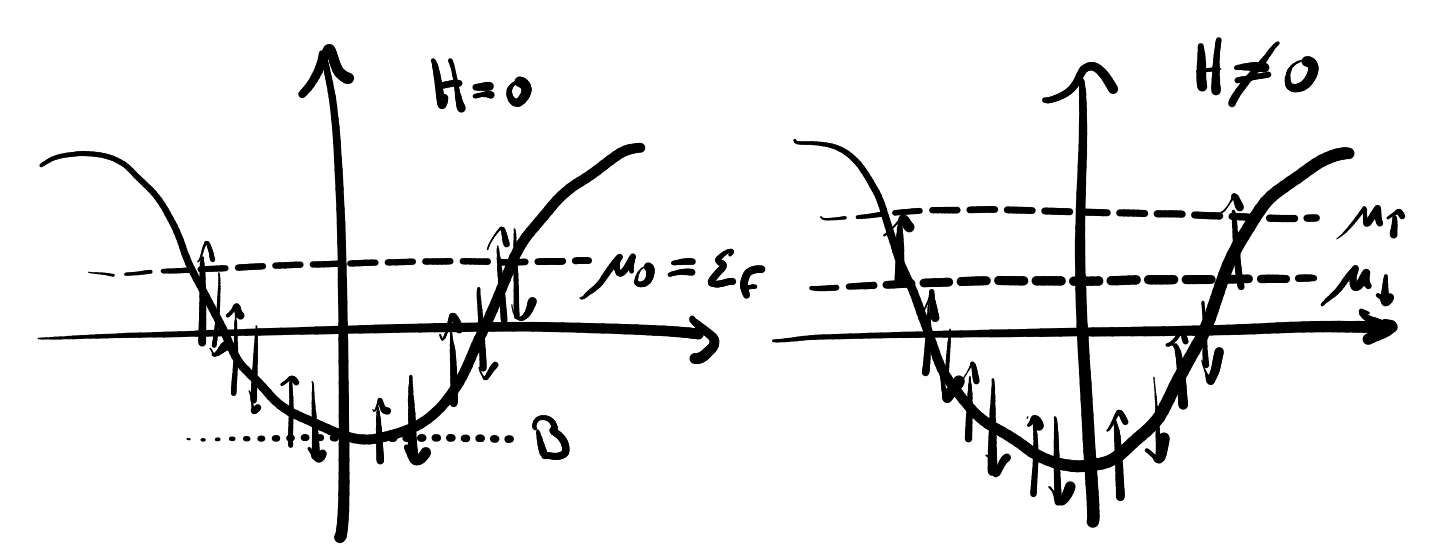 H=0
μ₀ = εF
B
H≠0
μ↑
μ↓